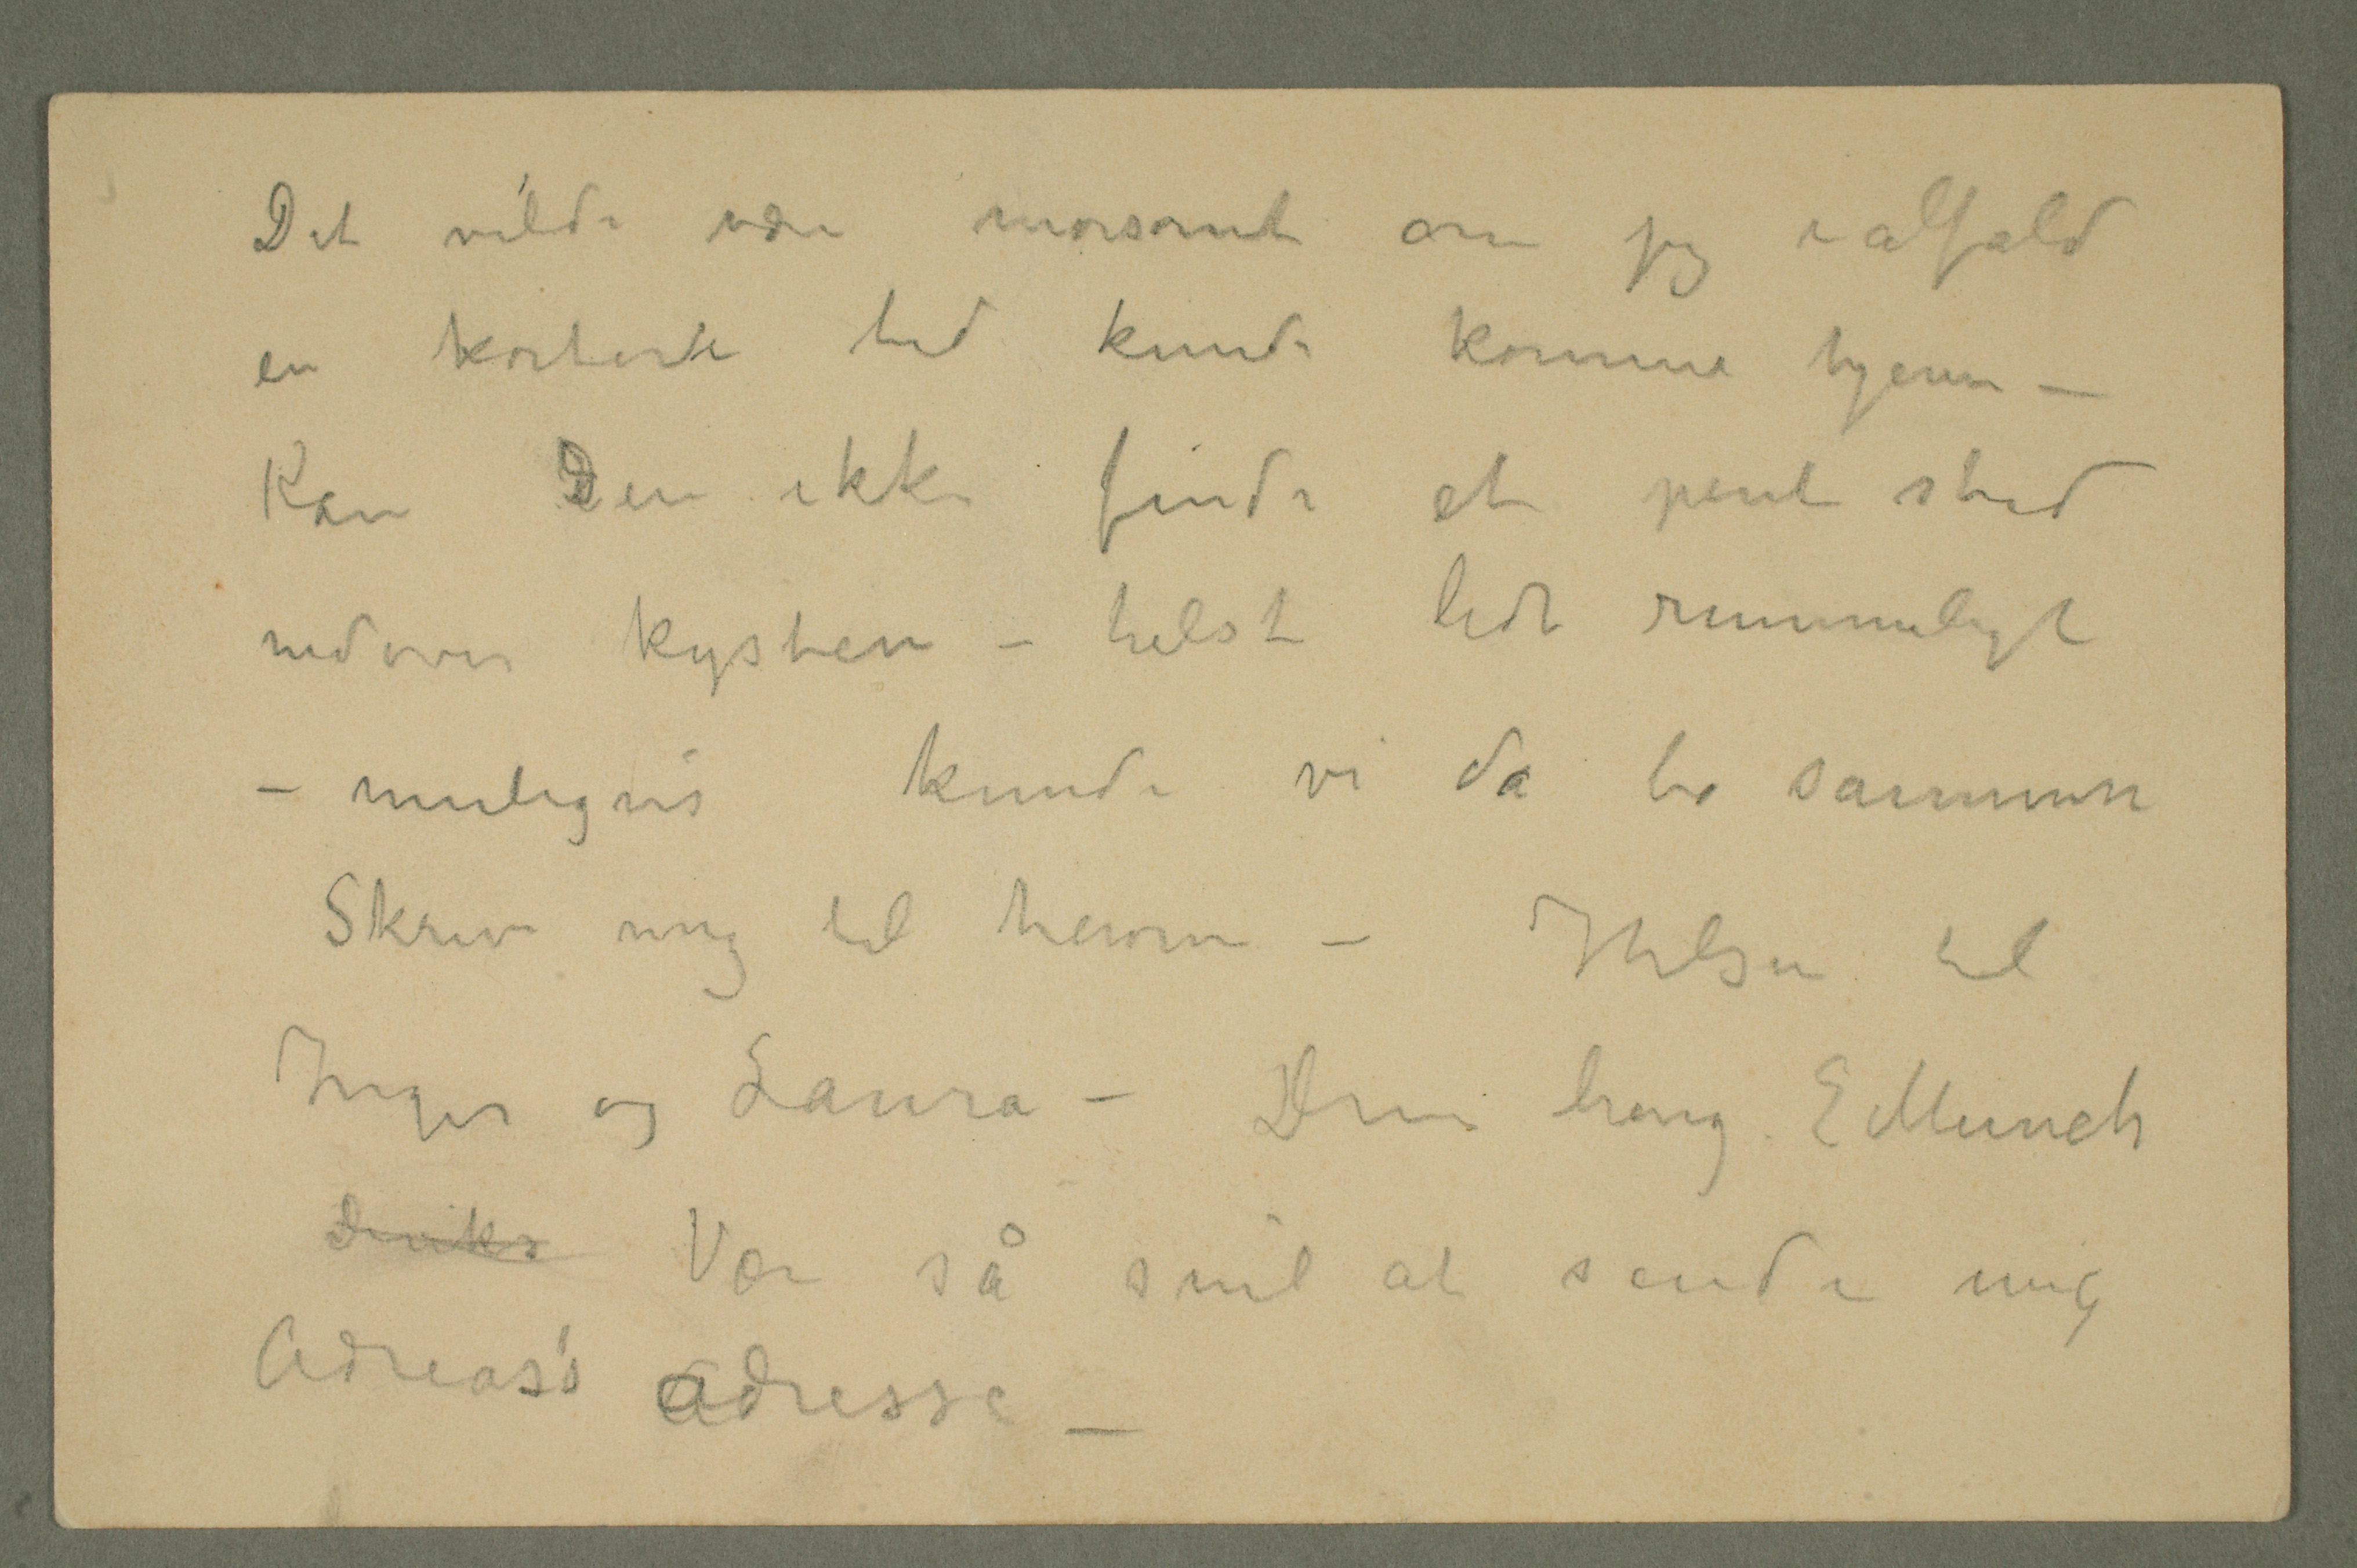 Det vilde være morsomt om jeg ialfald
en kortere tid kunde komme hjem –
Kan Den ikke finde et pent sted
nedover kysten – helst lidt rummeligt
– muligvis kunde vi da bo sammen
Skriv mig til herom – Hilsen til
Inger og Laura – Din heng. E Munch
Vær så snil at sende mig
Adreas's adresse –